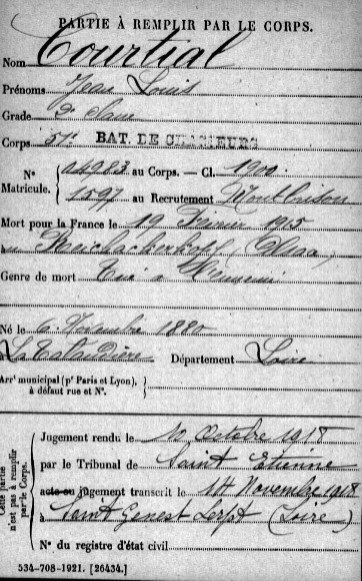 PARTIE À REMPLIR PAR LE CORPS.
Nom Courtial
Prénoms Jean Louis
Grade 2e
Corps 51e BAT. DE CHASSEURS
N° Matricule. 04983 au Corps. — Cl. 1900.
1597 au Recrutement Montbrison
Mort pour la France le 19 Février 1915
à Reichackerkopf (Alsace)
Genre de mort Tué à l'ennemi
Né le 6 Novembre 1880
à La Talaudière Département Loire
Arrt municipal (pr Paris et Lyon), à défaut rue et N°.
Cette partie n'est pas à remplir par le Corps.
Jugement rendu le 10 Octobre 1918
par le Tribunal de Saint Etienne
acte ou jugement transcrit le 14 Novembre 1918
à Saint Genest Lerpt (Loire)
N° du registre d'état civil
534-708-1921. [26434.]